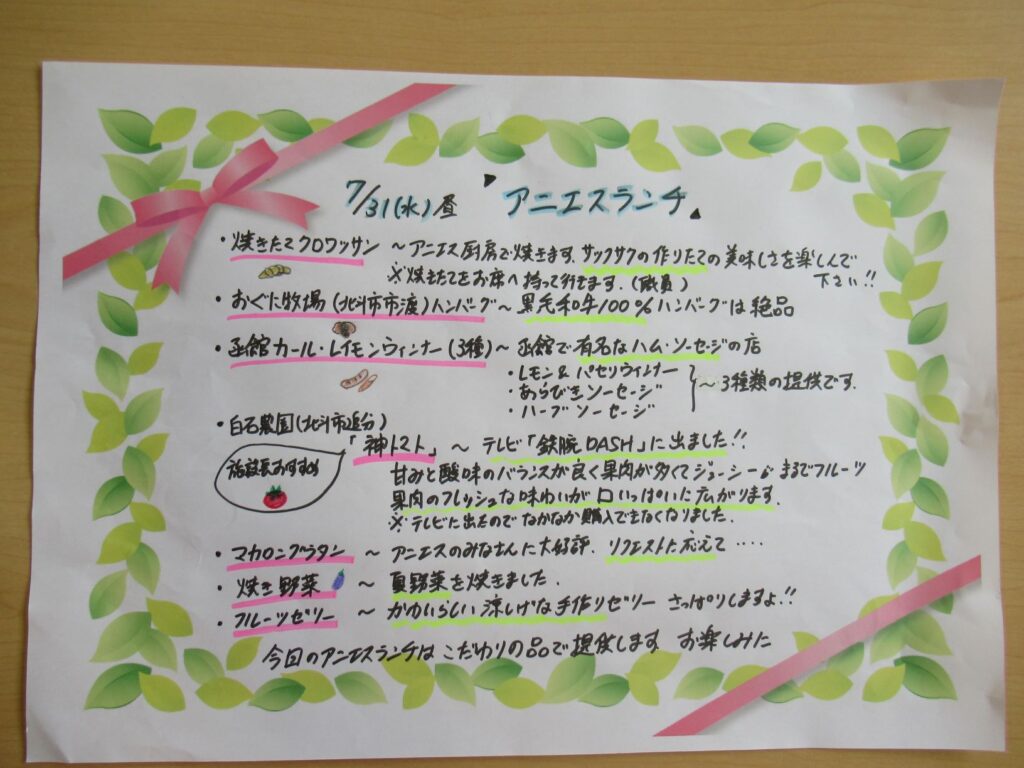 7/31(水)昼 アニエスランチ
・焼きたてクロワッサン ～アニエス厨房で焼きます。サックサクの作りたての美味しさを楽しんで
※焼きたてをお席へ持って行きます.(職員) 下さい!!
・おぐに牧場(北斗市市渡)ハンバーグ～黒毛和牛100%ハンバーグは絶品
・函館カール・レイモンウィンナー(3種)～函館で有名なハム・ソーセージの店
・レモン&パセリウィンナー
・あらびきソーセージ ～3種類の提供です.
・ハーブソーセージ
・白石農園(北斗市追分)
「神トマト」～テレビ「鉄腕DASH」に出ました!!
施設長おすすめ
甘みと酸味のバランスが良く果肉が多くてジューシー。まるでフルーツ
果肉のフレッシュな味わいが口いっぱいに広がります.
※テレビに出たのでなかなか購入できなくなりました.
・マカロニグラタン ～アニエスのみなさんに大好評.リクエストに応えて‥‥
・焼き野菜 ～夏野菜を焼きました.
・フルーツゼリー ～かわいらしい涼しげな手作りゼリー さっぱりしますよ!!
今日のアニエスランチはこだわりの品で提供します お楽しみに